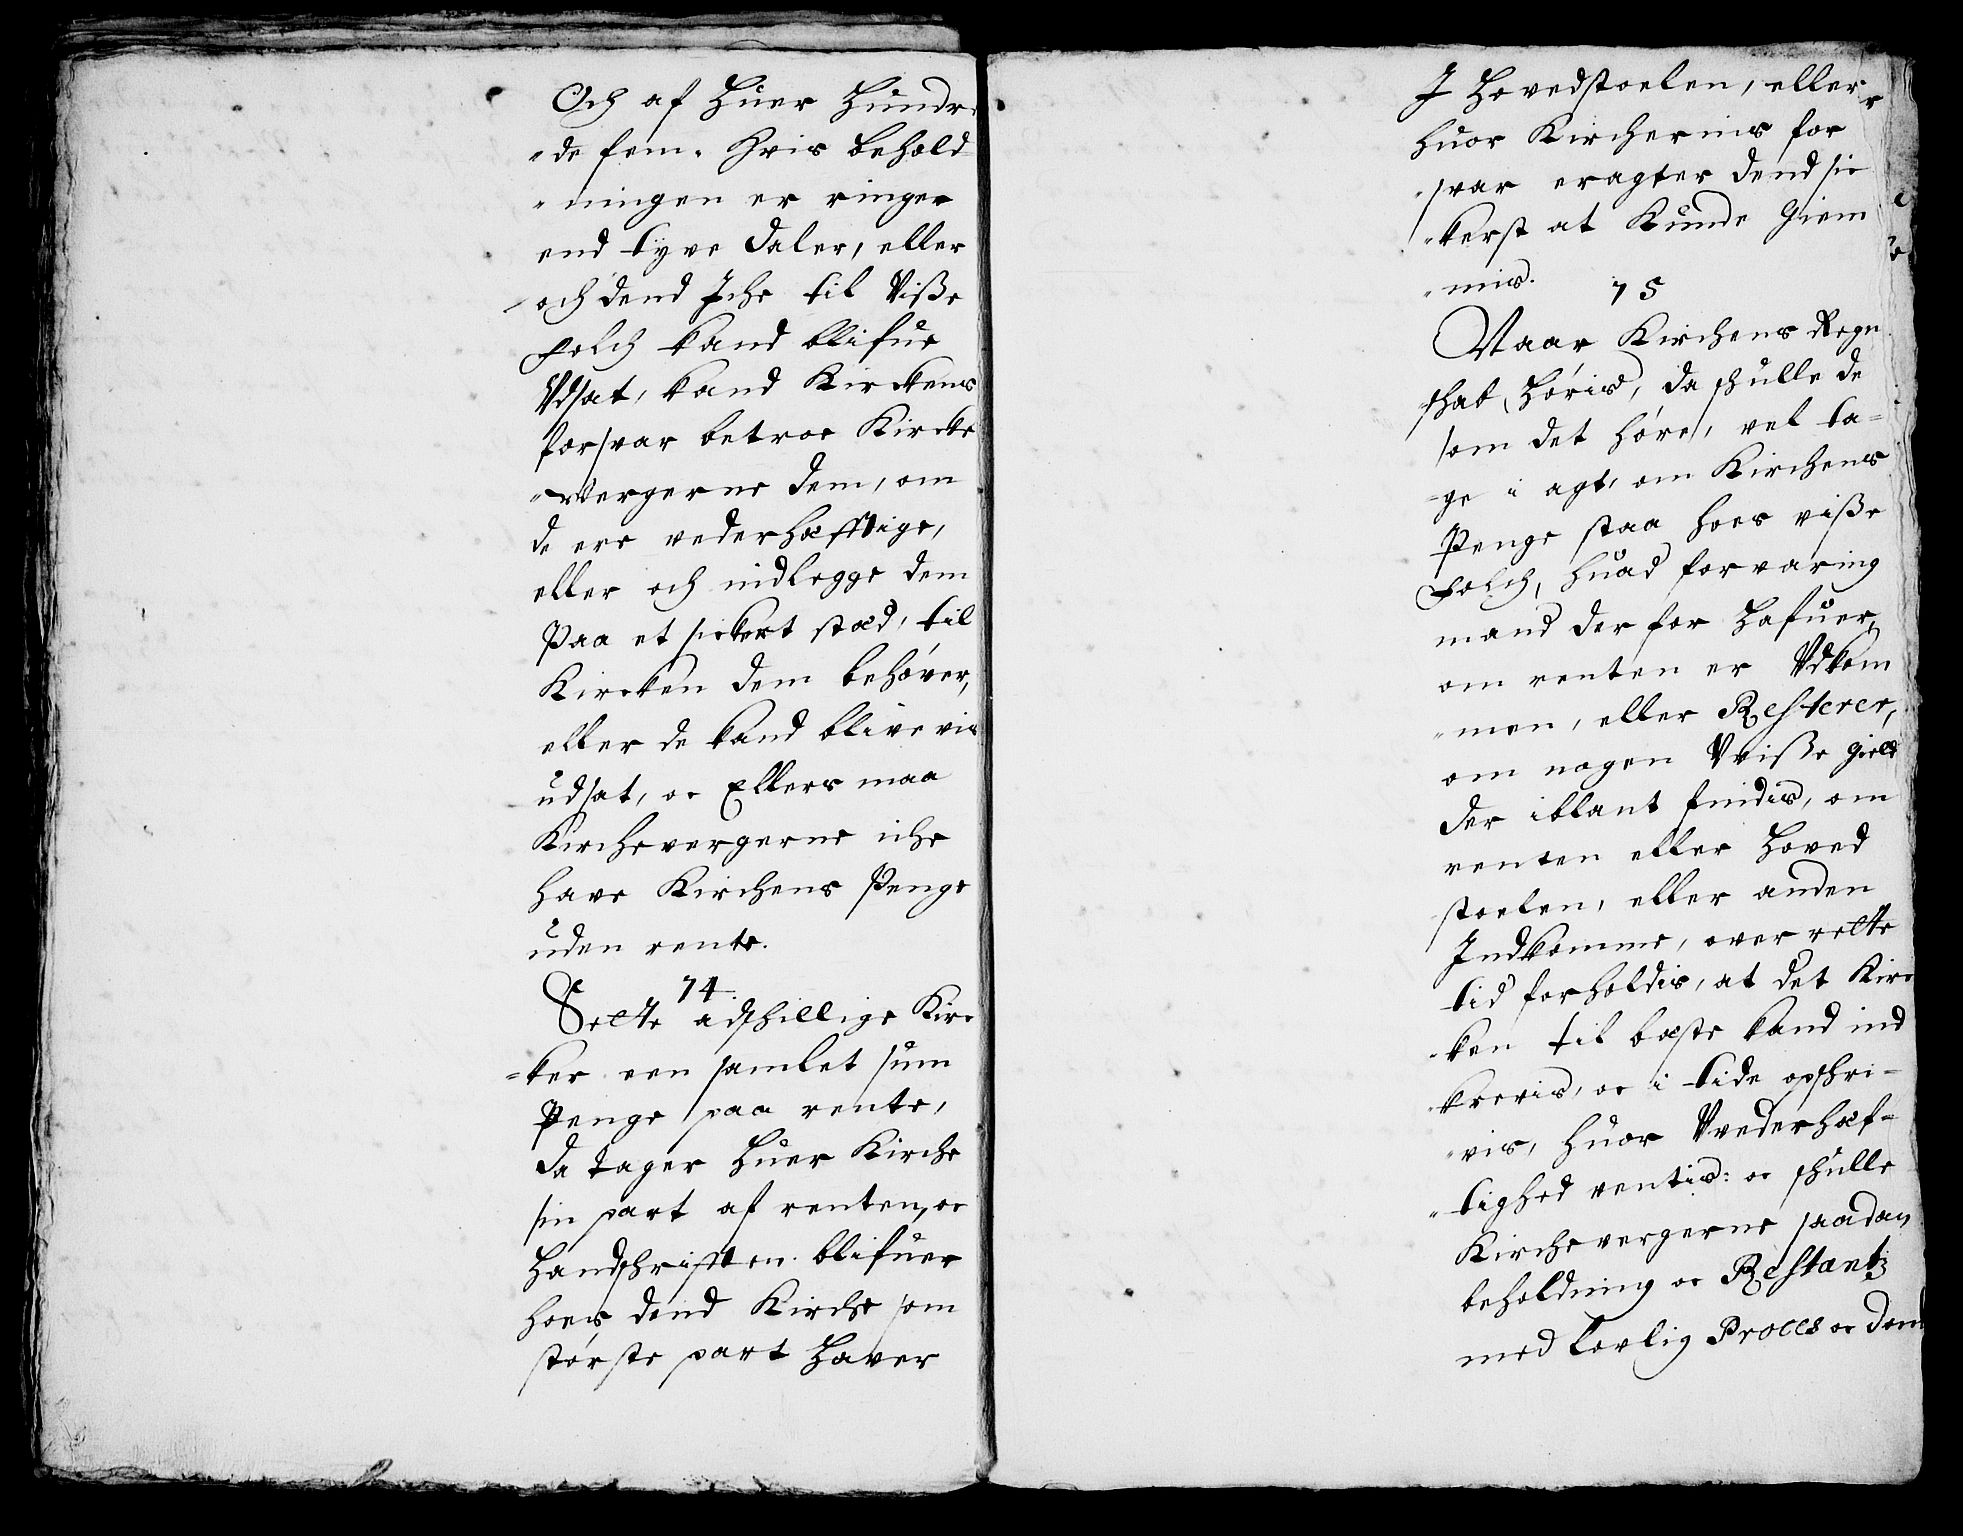 Och af Huer Hundre
"de fem. Hvis Behold-
"ningen er ringer
end tyve daler, eller
och dend Iche til Viße
Folch kand blifue
Vdsat, kand Kirckens
forsvar betroe Kircke
"wergerne dem, om
de ere vederhæfftige,
eller och nidlegge dem
Paa et sickert stæd, til
Kircken dem behøver,
eller de kand blive vis
udsat, oc Ellers maa
Kirchevergerne iche
have Kirchens Penge
uden rente.
74.
Sette adschillige Kirc
=ker een samlet sum
Penge paa rente,
da tager Huer Kirche
sin part af renten, oc
Handschrifften blifuer
hoes dend Kirche som
største part Haver
I Hovedstoelen, eller
huor Kirchernis for
"svar eragter dend sic
"kerst at Kunde Giem
"mis.
75
Naar Kirchens Regn
schab Høris, da schulle de
som det høre, vel ta-
=ge i agt, om Kirchens
Penge staa hoes viße
Folch, huad forvaring
mand der for Hafuer,
om renten er Vdkom
"men, eller Resterer,
om nogen Vviße gield
der iblant findis, om
renten eller Hoved
stoelen, eller anden
Indkomme, over rette
tid forholdis, at det Kirc
"ken til bæste kand ind
"kreris, oc i tide opschri-
"vis, huor Vvederhæf-
"tighed ventis: oc schulle
Kirchevergerne saadan
beholdning oc Restantz
med Lovlig Proces oc Dom